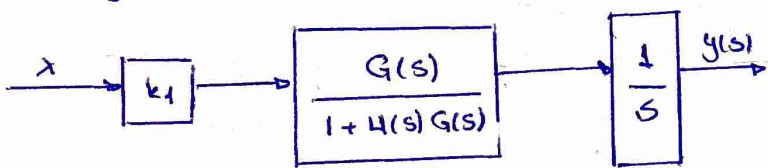 λ
k1
G(s)
1 + H(s) G(s)
1
s
y(s)